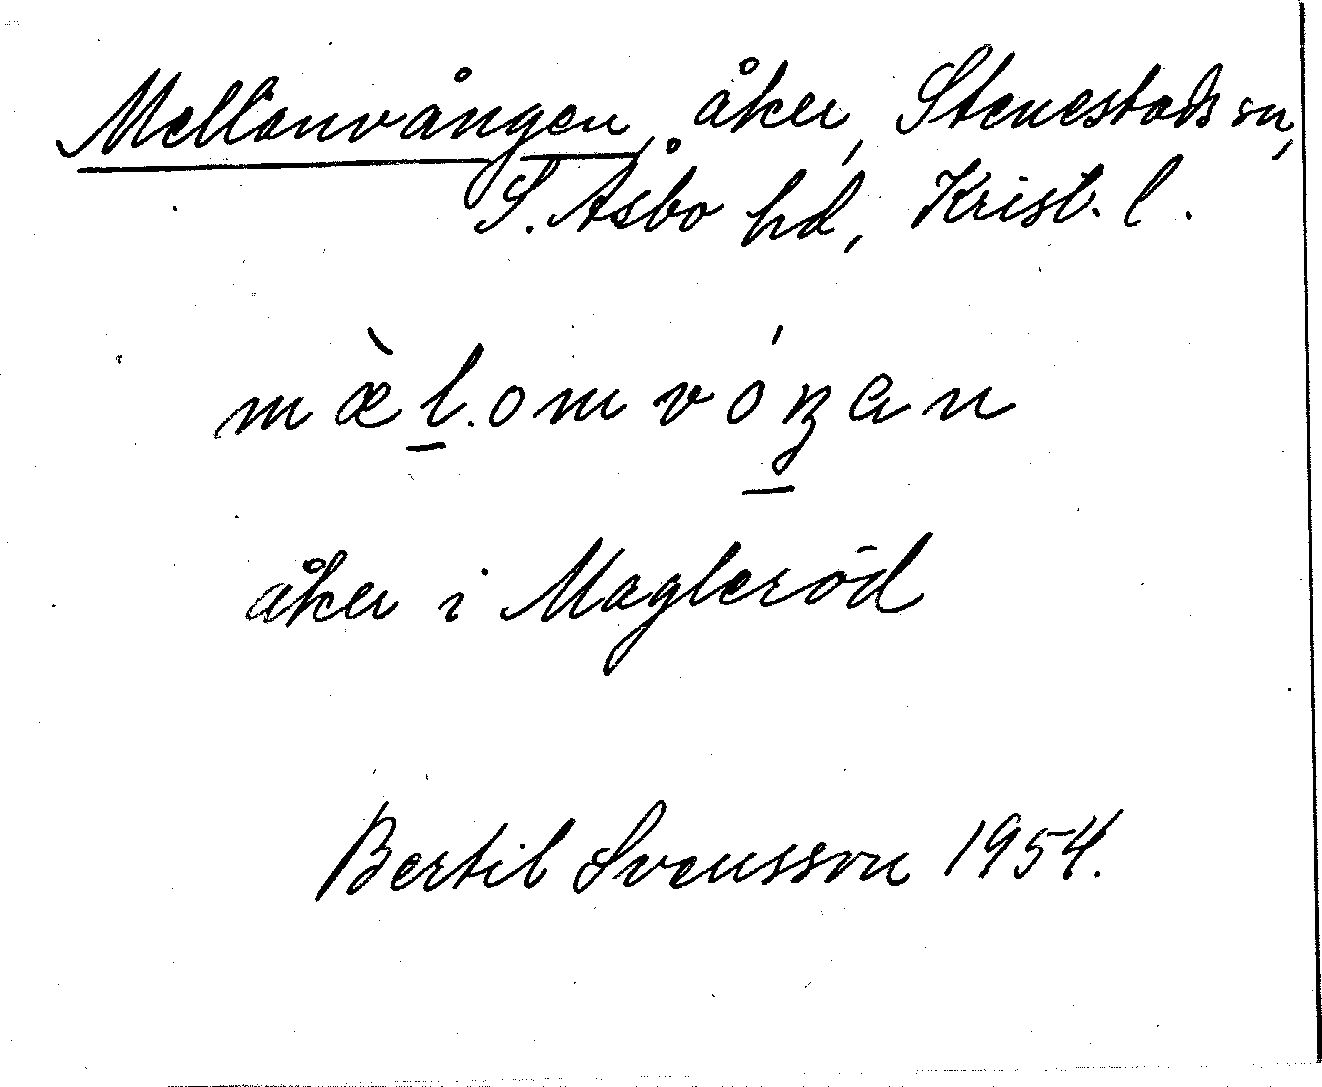 Mellanvången, åker, Stenestads sn,
S. Åsbo hd, Krist. l.
mæ̀l.omvóŋan
åker i Magleröd
Bertil Svensson 1954.